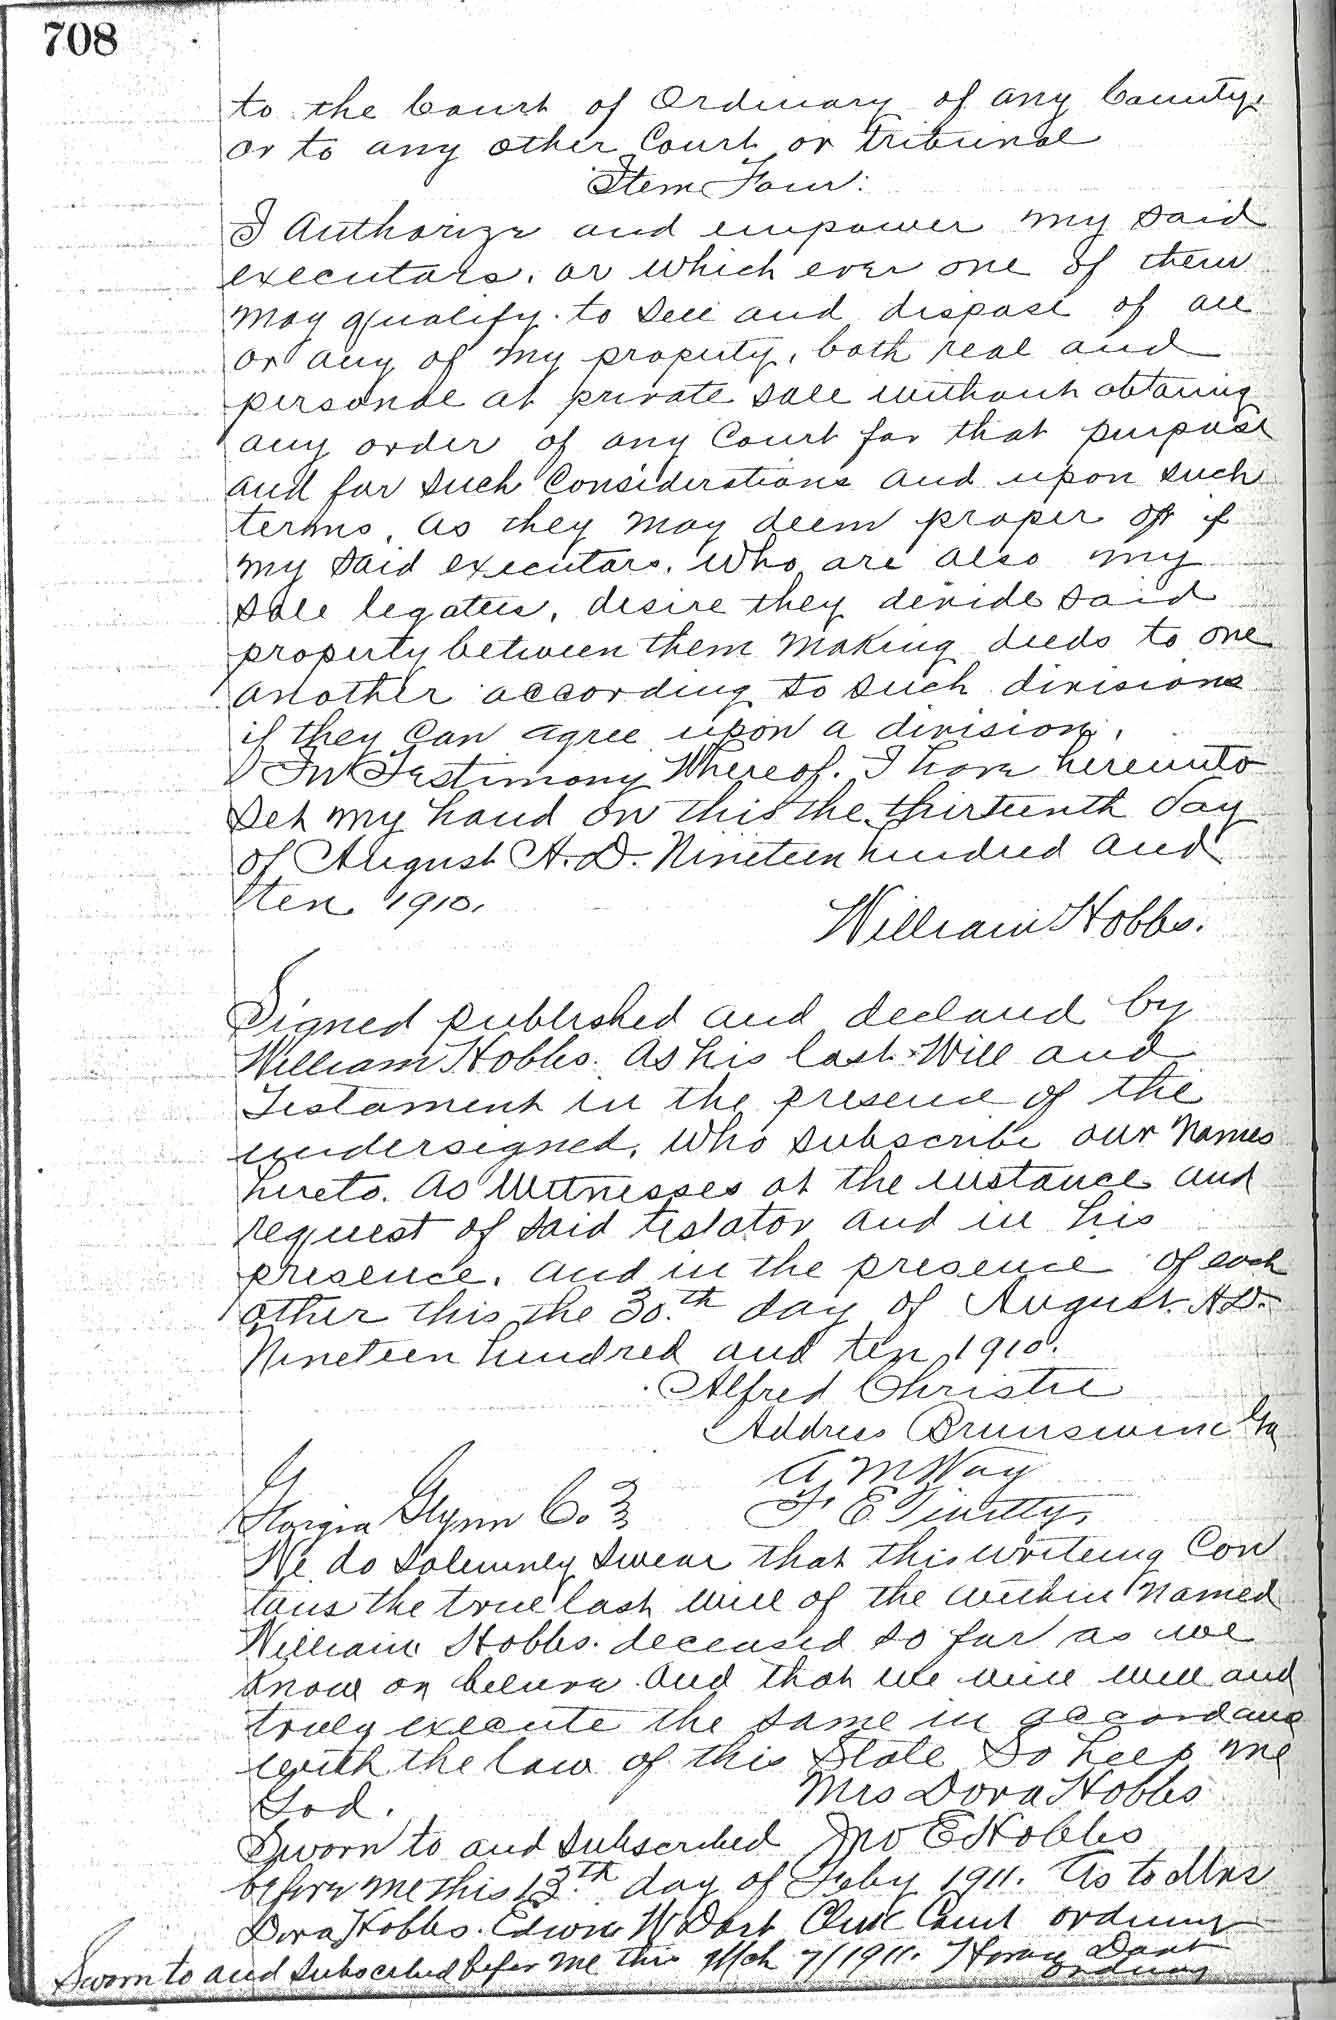 708
to the Court of Ordinary of any County,
or to any other Court or tribunal
Item Four:
I Authorize and empower my said
executors, or which ever one of them
may qualify to sell and dispose of all
or any of my property, both real and
personal at private sale without obtaning
any order of any Court for that purpose
and for such Considerations and upon such
terms, as they may deem proper or if
my said executors, who are also my
sole legatees, desire they devide said
property between them making deeds to one
another according to such divisions
if they can agree upon a division.
In Testimony Whereof. I have hereunto
set my hand on this the thirteenth day
of August A.D. Nineteen hundred and
ten 1910.
William Hobbs.
Signed published and declared by
William Hobbs. As his last Will and
Testament in the presence of the
undersigned, who subscribe our Names
hereto. As Witnesses at the instance and
request of said testator and in his
presence, and in the presence of each
other this the 30.th day of August A.D.
Nineteen hundred and ten 1910.
Alfred Christie
Address Brunswick Ga
A M Way
F E
Georgia Glynn Co. }
We do solemnly swear that this writeing Con
tans the true last will of the within named
William Hobbs. deceased so far as we
know or beleive and that we will well and
truly execute the same in accordance
with the law of this State So help me
God.
Mrs Dora Hobbs
Sworn to and subscribed Jno E Hobbs
before me this 13.th day of Feby 1911. As to Mrs
Dora Hobbs. Edwin W Dart Clerk Court ordinary
Sworn to and subscribed befor me this Mch 7/1911. Horace Dart
ordinary